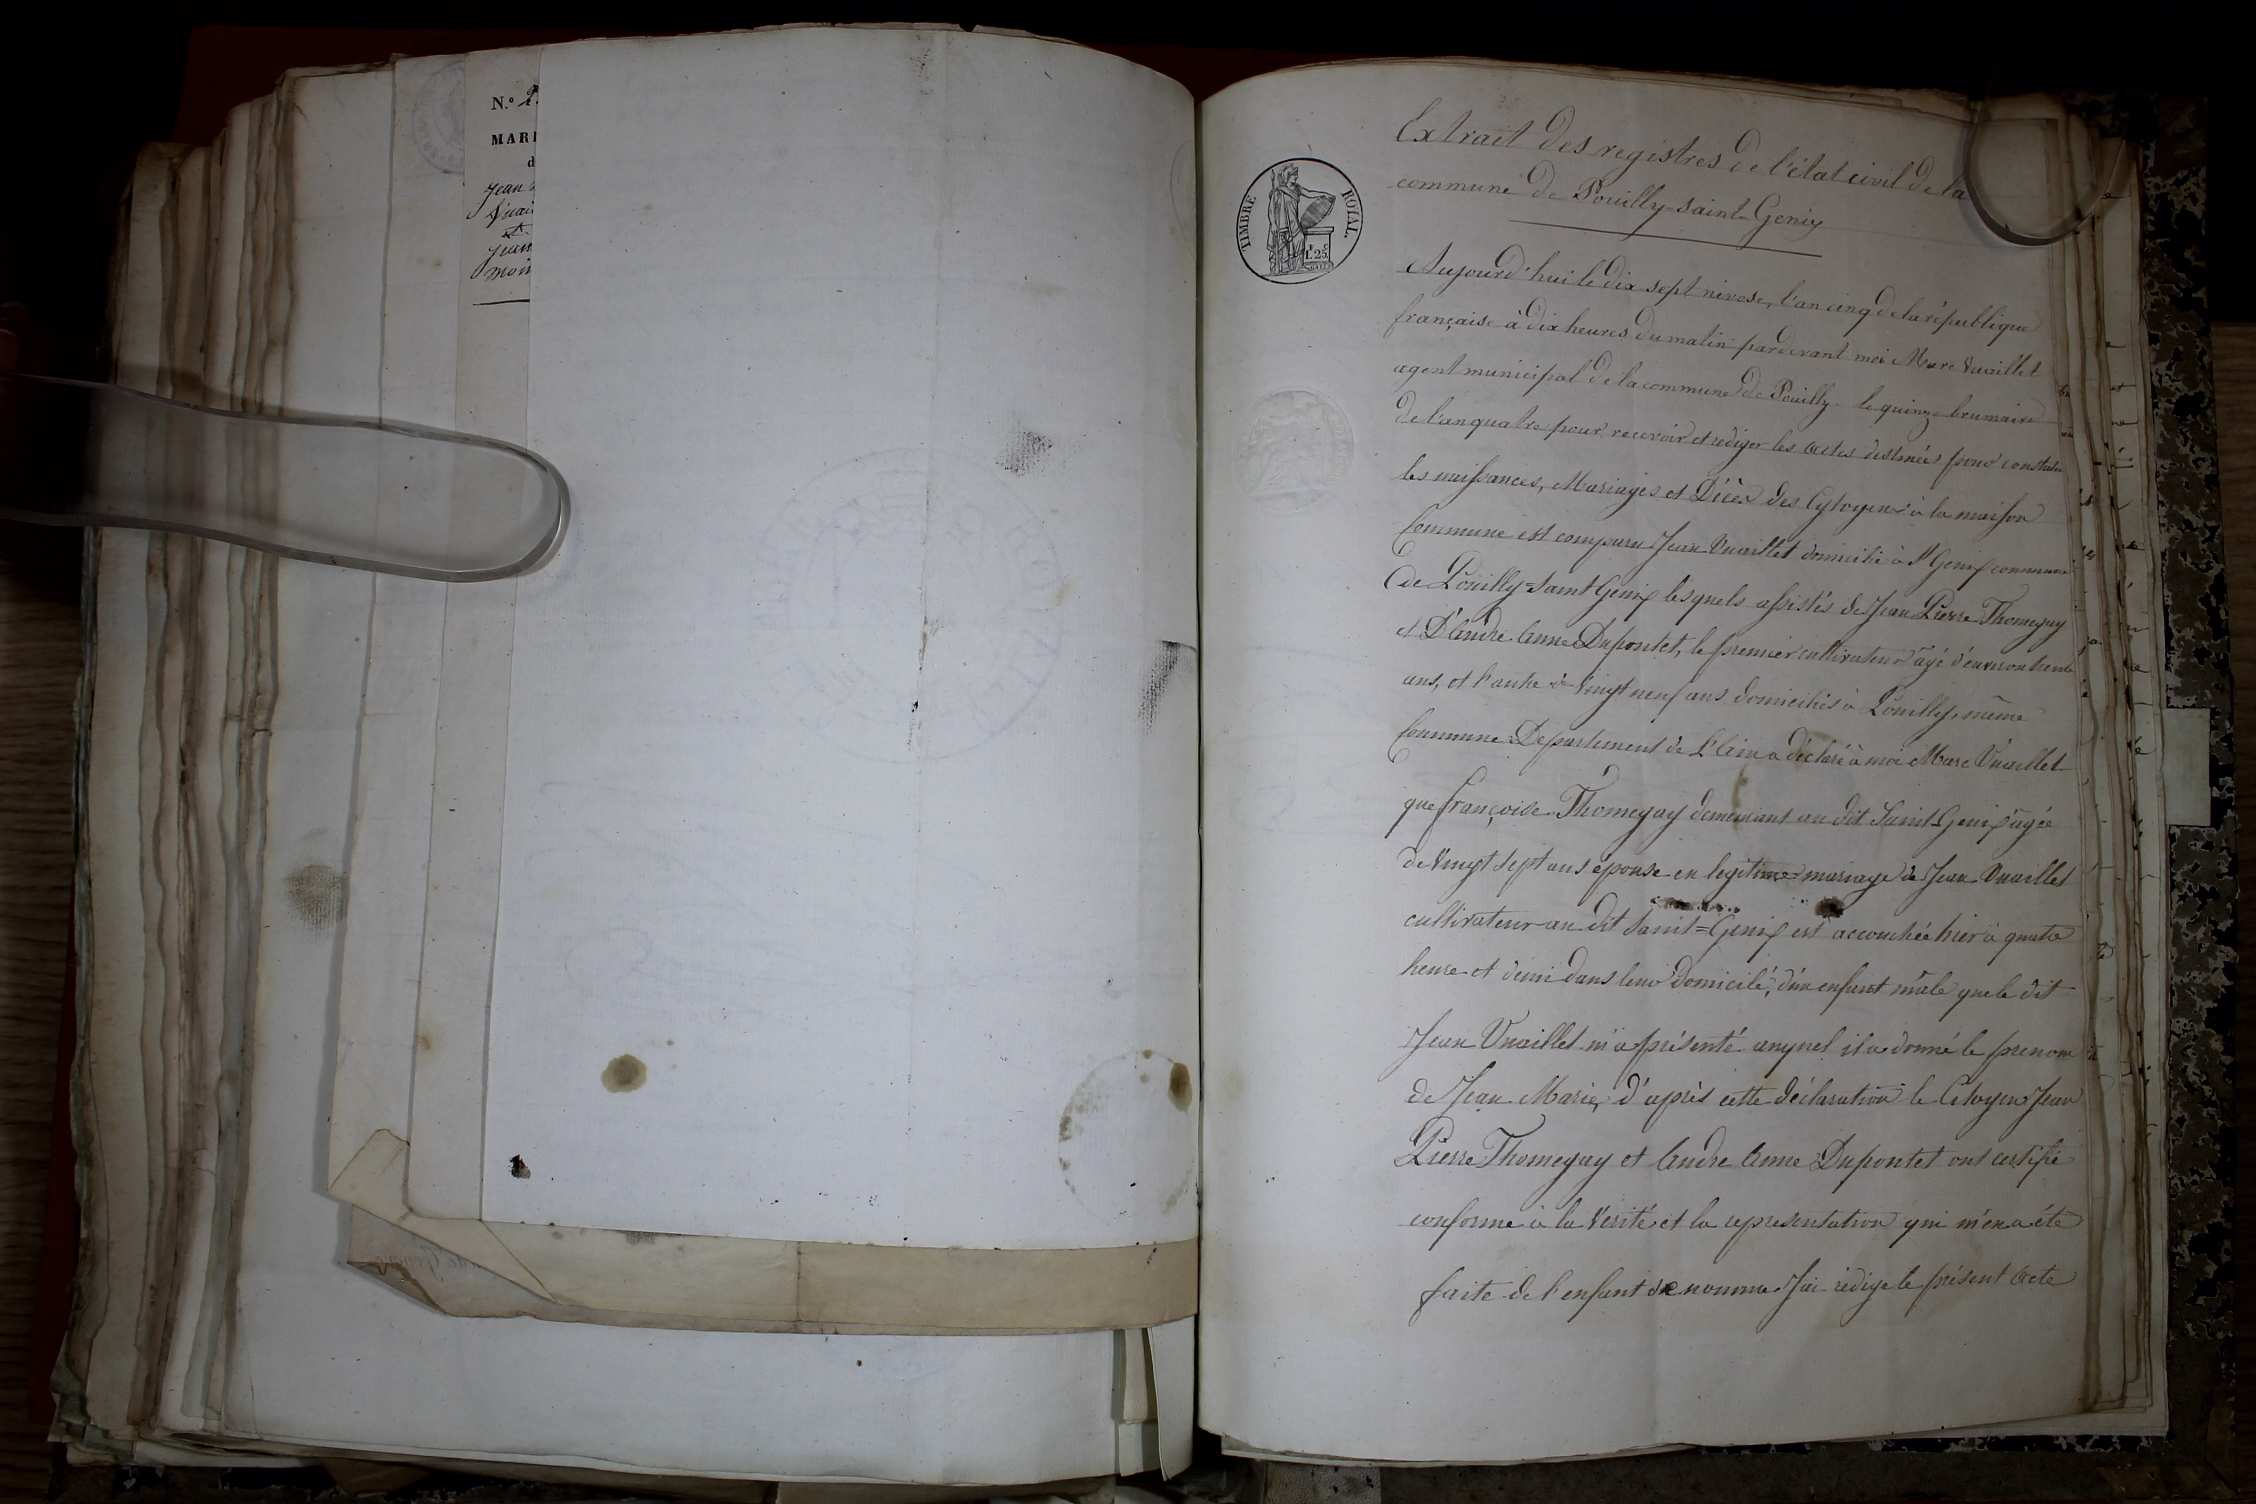 N.o 2
MARI
d
Jean
Vuai
Jean
moin
TIMBRE ROYAL.
1.25.
Extrait des registres de l'état civil de la
commune de Pouilly-saint-Genix
Aujourd'hui le dix sept nivose, l'an cinq de la république
française à dix heures du matin pardevant moi Marc Vuaillet
agent municipal de la commune de Pouilly le quinze brumaire
de l'an quatre pour recevoir et rediger les actes destinés pour constater
les naissances, Mariages et Décès des Cytoyens à la maison
Commune est comparu Jean Vuaillet domicilié à St Genix commune
de Pouilly=Saint Genix lesquels assistés de Jean Pierre Thomegay
et D'André Anne Dupontet, le premier cultivateur agé d'environ trente
ans, et l'autre de vingt neuf ans domiciliés à Pouilly, même
Commune Departement de L'Ain a déclaré à moi Marc Vuaillet
que françoise Thomegay demeurant au dit Saint-Genix agée
de vingt sept ans épouse en legitime mariage de Jean Vuaillet
cultivateur au dit Saint=Genix est accouchée hier à quatre
heure et demi dans leur domicile, d'un enfant mâle que le dit
Jean Vuaillet m'a présenté auquel il a donné le prenom
de Jean Marie, d'après cette déclaration le Citoyen Jean
Pierre Thomegay et André Anne Dupontet ont certifié
conforme à la Vérité et la representation qui m'en a été
faite de l'enfant denommé J'ai rédigé le présent Acte